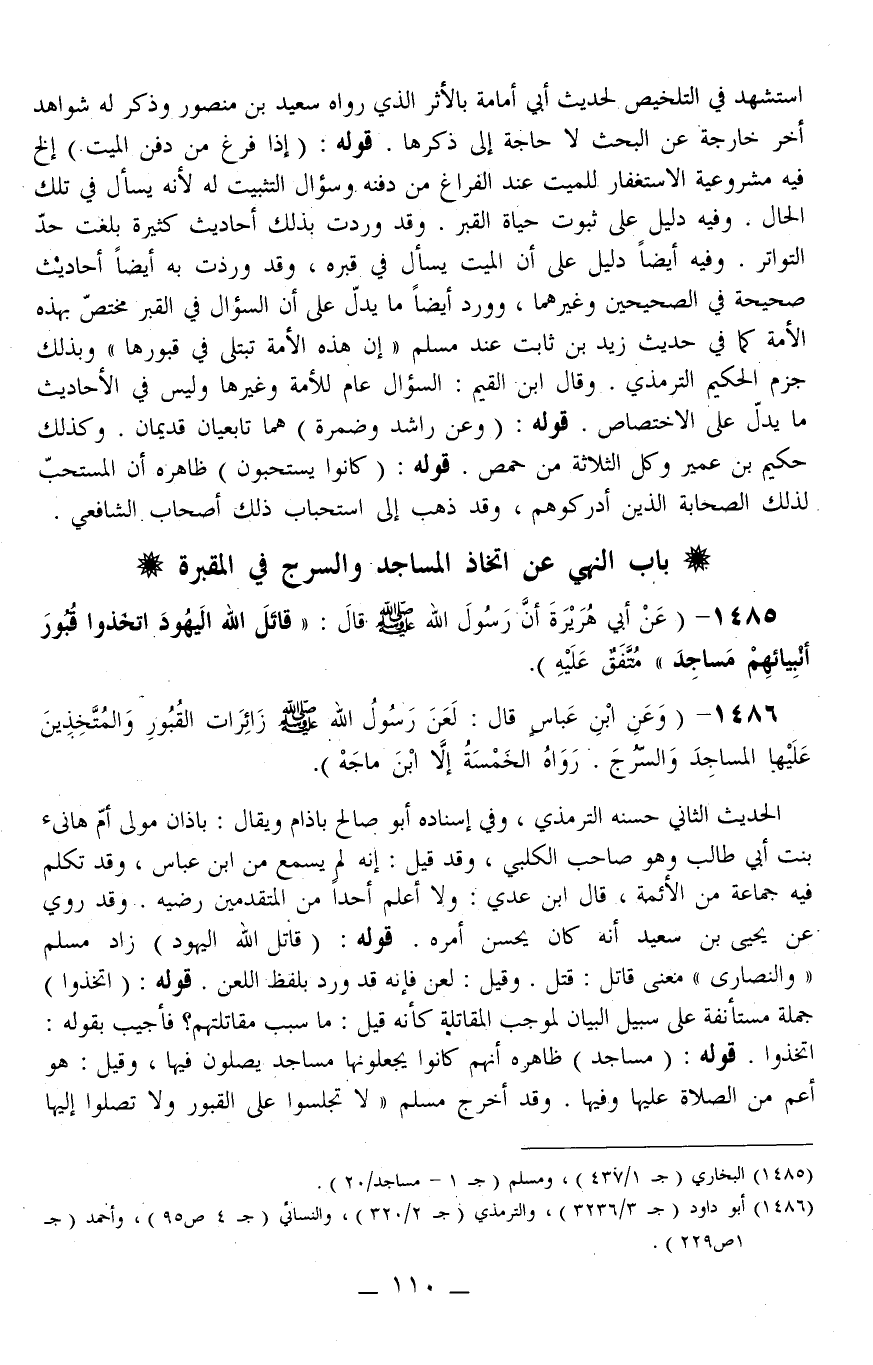 استشهد في التلخيص لحديث أبي أمامة بالأثر الذي رواه سعيد بن منصور وذكر له شواهد
أخر خارجة عن البحث لا حاجة إلى ذكرها . قوله : ( إذا فرغ من دفن الميت ) إلخ
فيه مشروعية الاستغفار للميت عند الفراغ من دفنه وسؤال التثبيت له لأنه يسأل في تلك
الحال . وفيه دليل على ثبوت حياة القبر . وقد وردت بذلك أحاديث كثيرة بلغت حدّ
التواتر . وفيه أيضاً دليل على أن الميت يسأل في قبره ، وقد وردت به أيضاً أحاديث
صحيحة في الصحيحين وغيرهما ، وورد أيضاً ما يدلّ على أن السؤال في القبر مختصّ بهذه
الأمة كما في حديث زيد بن ثابت عند مسلم « إن هذه الأمة تبتلى في قبورها » وبذلك
جزم الحكيم الترمذي . وقال ابن القيم : السؤال عام للأمة وغيرها وليس في الأحاديث
ما يدلّ على الاختصاص . قوله : ( وعن راشد وضمرة ) هما تابعيان قديمان . وكذلك
حكيم بن عمير وكل الثلاثة من حمص . قوله : ( كانوا يستحبون ) ظاهره أن المستحبّ
لذلك الصحابة الذين أدركوهم ، وقد ذهب إلى استحباب ذلك أصحاب الشافعي .
❋ باب النهي عن اتخاذ المساجد والسرج في المقبرة ❋
١٤٨٥- ( عَنْ أبي هُرَيْرَةَ أنَّ رَسُولَ الله ﷺ قالَ : « قاتَلَ الله اليَهُودَ اتخَذوا قُبُورَ
أنْبِيائهِمْ مَساجِدَ » مُتَّفَقٌ عَلَيْهِ ).
١٤٨٦- ( وَعَنِ ابْنِ عَباسٍ قال : لَعَنَ رَسُولُ الله ﷺ زَائِرَات القُبُورِ وَالمُتَّخِذِينَ
عَلَيْها المساجِدَ وَالسُّرُجَ . رَوَاهُ الخَمْسَةُ إلَّا ابْنَ ماجَهْ ).
الحديث الثاني حسنه الترمذي ، وفي إسناده أبو صالح باذام ويقال : باذان مولى أمّ هانىء
بنت أبي طالب وهو صاحب الكلبي ، وقد قيل : إنه لم يسمع من ابن عباس ، وقد تكلم
فيه جماعة من الأئمة ، قال ابن عدي : ولا أعلم أحداً من المتقدمين رضيه . وقد روي
عن يحيى بن سعيد أنه كان يحسن أمره . قوله : ( قاتل الله اليهود ) زاد مسلم
« والنصارى » معنى قاتل : قتل . وقيل : لعن فإنه قد ورد بلفظ اللعن . قوله : ( اتخذوا )
جملة مستأنفة على سبيل البيان لموجب المقاتلة كأنه قيل : ما سبب مقاتلتهم؟ فأجيب بقوله :
اتخذوا . قوله : ( مساجد ) ظاهره أنهم كانوا يجعلونها مساجد يصلون فيها ، وقيل : هو
أعم من الصلاة عليها وفيها . وقد أخرج مسلم « لا تجلسوا على القبور ولا تصلوا إليها
(١٤٨٥) البخاري ( جـ ٤٣٧/١ ) ، ومسلم ( جـ ١ – مساجد/٢٠ ) .
(١٤٨٦) أبو داود ( جـ ٣٢٣٦/٣ ) ، والترمذي ( جـ ٣٢٠/٢ ) ، والنسائي ( جـ ٤ ص٩٥ ) ، وأحمد ( جـ
١ص٢٢٩ ) .
– ١١٠ –